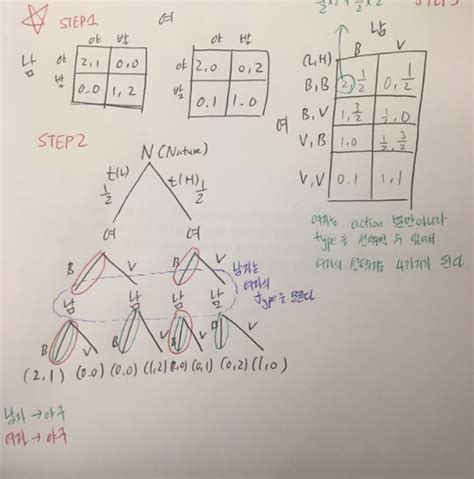 STEP1
여
야 발
야 발
남
야
발
2,1 0,0
0.0 1,2
야
발
2,0 0,2
0.1 1.0
STEP2
N (Nature)
t(L) t(H)
1/2 1/2
여 여
B V B V
남 남 남 남
B V B V B V B V
(2,1) (0.0) (0.0) (1,2) (2,0) (0,1) (0,2) (1,0)
남자는
여자의
type을 모른다.
남자 → 야구
여자 → 야구
남
B V
(L,H)
여
B,B 2,1/2 0,1/2
B,V 1,3/2 1/2,0
V,B 1,0 1/2,3/2
V,V 0.1 1,1
여자는 action 뿐만아니라
type을 선택할 수 있어서
4가지가 된다.